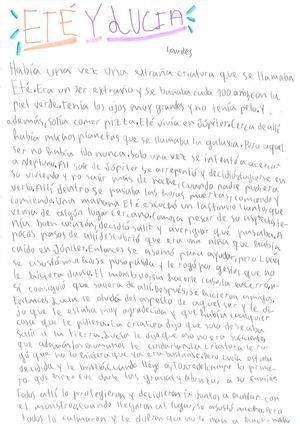 ETÉ Y LUCIA
Lourdes
Había una vez una extraña criatura que se llamaba
Eté. Era un ser extraño y se bañaba cada 100 años, con la
piel verde. Tenía los ojos muy grandes y no tenía pelo. Y
además, solía comer pizza. Eté vivía en Júpiter. Cerca de allí
había muchos planetas que se llamaba la galaxia. Pero aquel
ser no había ido nunca. Solo una vez se intentó a acercar
a Neptuno. Al salir de Júpiter se arrepintió y decidió
su vivienda y no salir más de noche, cuando nadie pudiera
verlo. Allí dentro se pasaba las horas muertas, comiendo y
comiendo. Una mañana Eté escuchó un lastimoso llanto, que
venía de algún lugar cercano. Como a pesar de su aspecto, te-
nía buen corazón, decidió salir y averiguar qué pasaba. A
pocos pasos de allí descubrió que era una niña que había
caído en Júpiter. Entonces se asomó para ayudar, pero Lucía
se asustó mucho, se puso pálida y le rogó por gestos que no
le hiciera daño. El monstruo, sin hacerle caso, la
si consiguió que saliera de allí. Después, se hicieron amigos.
Entonces Lucía se olvidó del aspecto de aquel ser y le di-
jo que le estaba muy agradecida y que haría cualquier
cosa que le pidiera. La criatura dijo que solo deseaba
salir a la tierra. Lucía le dijo que eso no era suficiente
que además los humanos le cuidarían. La criatura le ro-
gó que no lo hiciera que ya era bastante. Pero Lucía estaba
decidida y le
que hizo fue darle las gracias y abrazar a su
Todos allí lo protegieron y decidieron ir juntos a hablar con
el monstruo, cuando llegaron al lugar, se asustó mucho. Pero
todos lo calmaron y le dijeron que no le iban a hacer nada